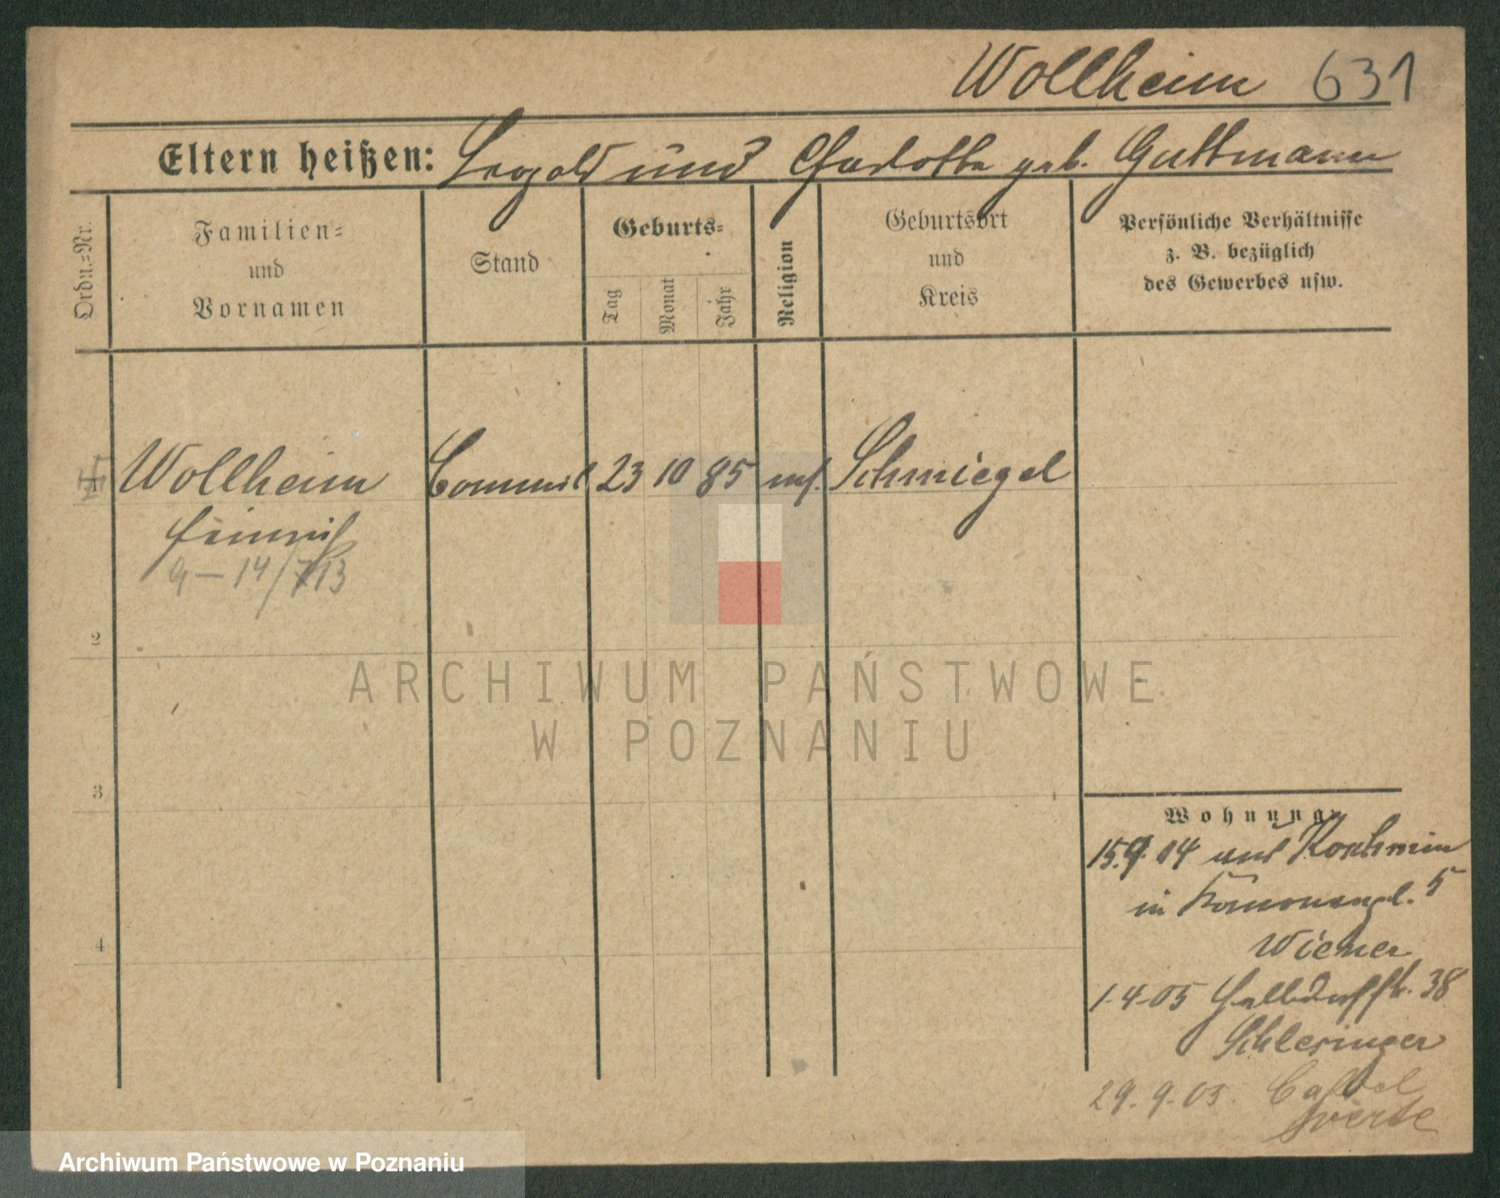 Wollheim 631
Eltern heißen: Leopold und Charlotte geb. Guttmann
Ordn.-Nr.
Familien-
und
Vornamen
Stand
Geburts-
Tag
Monat
Jahr
Religion
Geburtsort
und
Kreis
Persönliche Verhältnisse
z. B. bezüglich
des Gewerbes usw.
Wollheim Commis 23 10 85 mos. Schmiegel
Heinrich
9-14/713
2
3
4
Wohnung
15.9.04 aus Koschmin
in 5
Wiener
1-4-05 38
Schlesinger
29.9.05. Cassel
ARCHIWUM PAŃSTWOWE
W POZNANIU
Archiwum Państwowe w Poznaniu